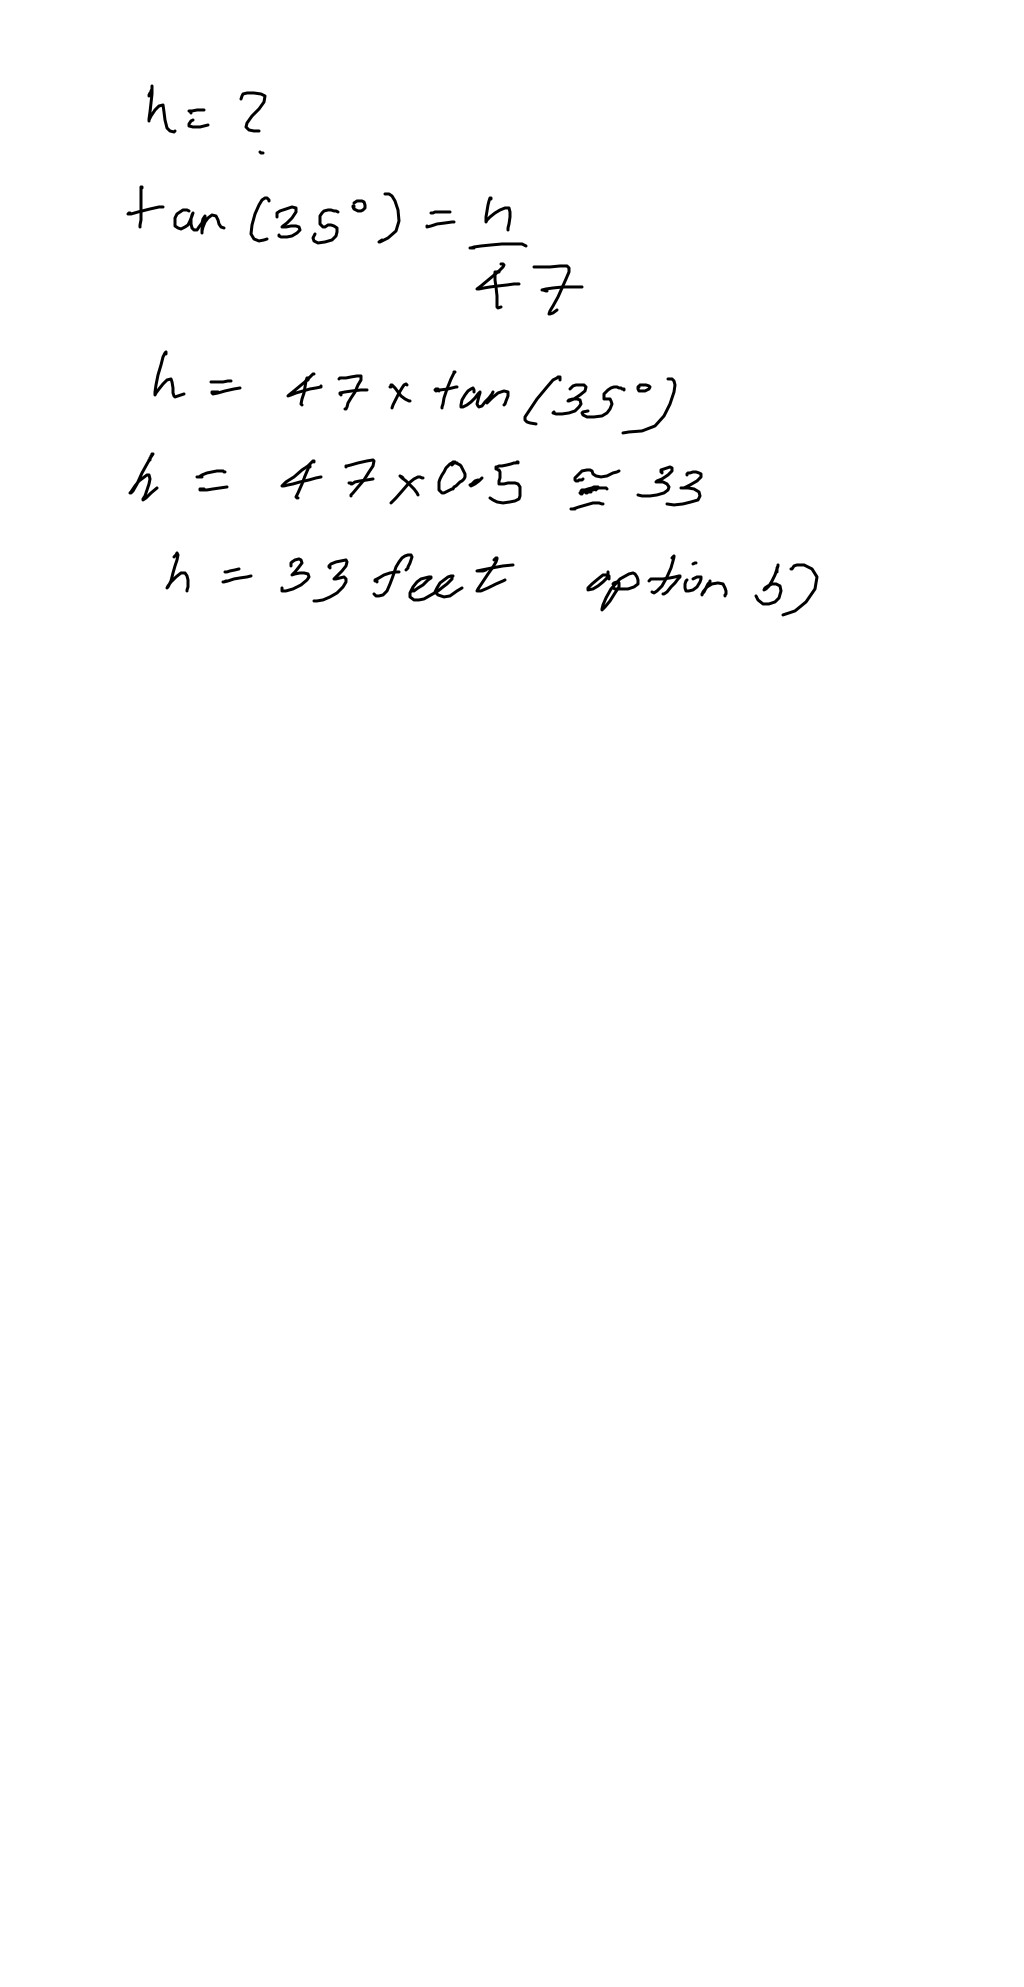 h = ?
tan (35°) = h/47
h = 47 x tan (35°)
h = 47 x 0.5 ≅ 33
h = 33 feet option b)